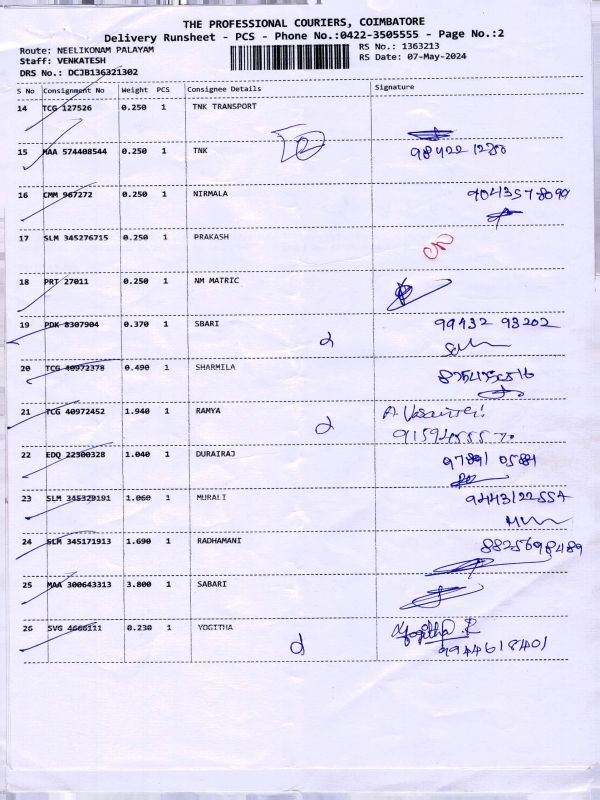 THE PROFESSIONAL COURIERS, COIMBATORE
Delivery Runsheet - PCS - Phone No.:0422-3505555 - Page No.:2
Route: NEELIKONAM PALAYAM RS No.: 1363213
Staff: VENKATESH RS Date: 07-May-2024
DRS No.: DCJB136321302
S No Consignment No Weight PCS Consignee Details Signature
14 TCG 127526 0.250 1 TNK TRANSPORT
15 MAA 574408544 0.250 1 TNK 2 984221280
16 CMM 967272 0.250 1 NIRMALA 9043578099
17 SLM 345276715 0.250 1 PRAKASH
18 PRT 27011 0.250 1 NM MATRIC
19 PDK 8307904 0.370 1 SBARI d 99432 93202
20 TCG 40972378 0.490 1 SHARMILA
21 TCG 40972452 1.940 1 RAMYA d
22 EDQ 22300328 1.040 1 DURAIRAJ 97891 0584
23 SLM 345320191 1.060 1 MURALI 944312255A
24 SLM 345171913 1.690 1 RADHAMANI 8825698489
25 MAA 300643313 3.800 1 SABARI
26 SVG 4666111 0.230 1 YOGITHA d Yogitha R
9944618401